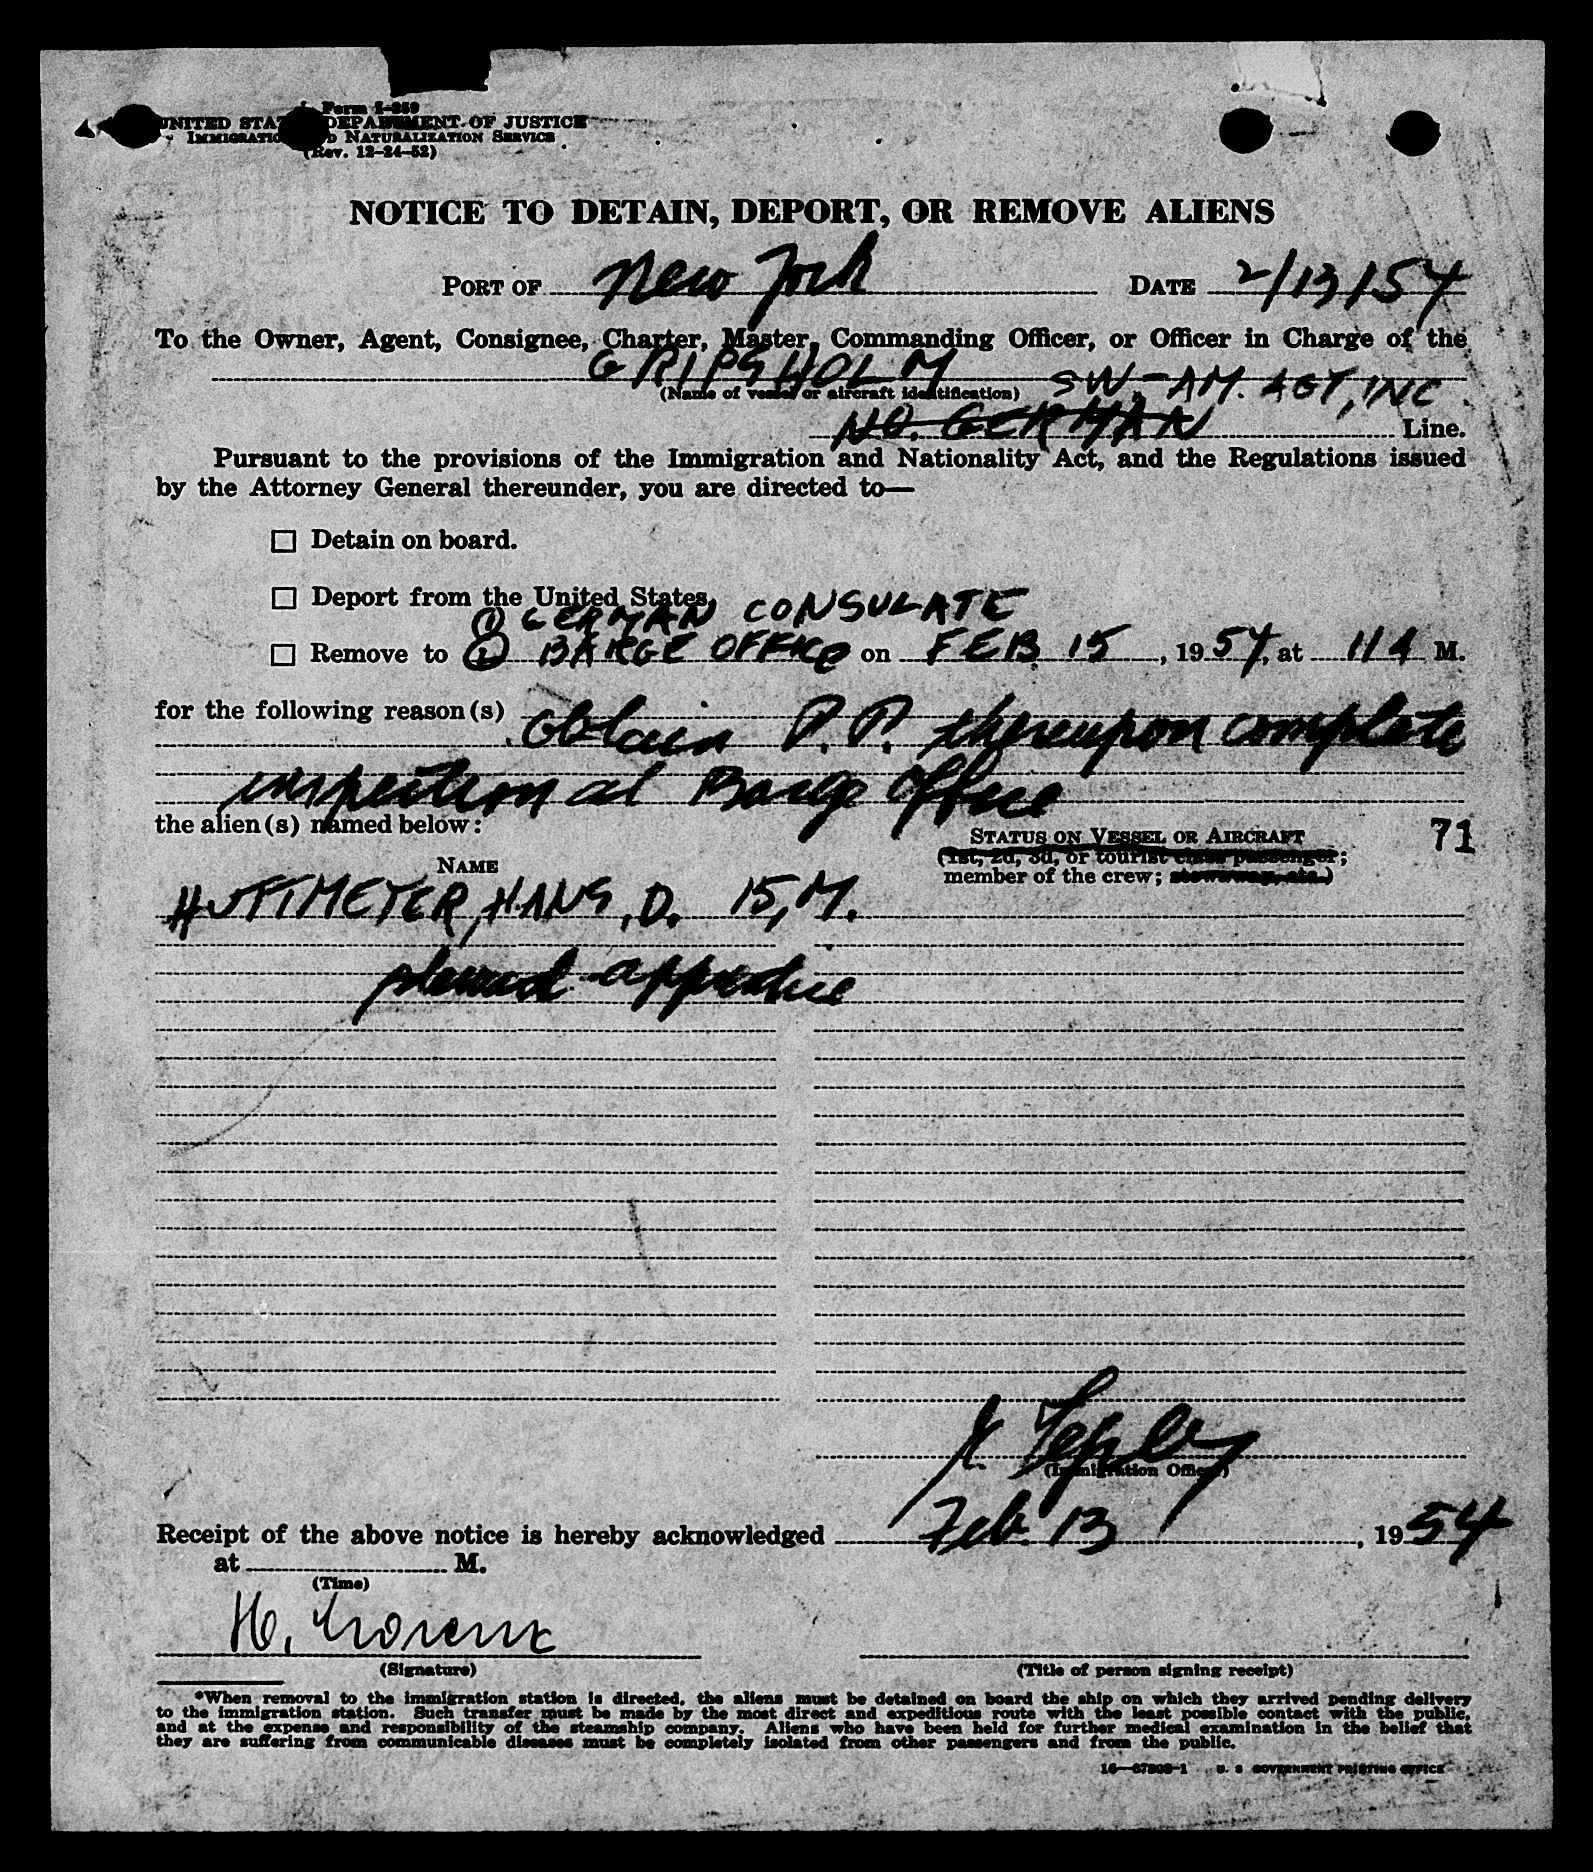 Form I-259
UNITED STATES DEPARTMENT OF JUSTICE
IMMIGRATION AND NATURALIZATION SERVICE
(Rev. 12-24-52)
NOTICE TO DETAIN, DEPORT, OR REMOVE ALIENS
PORT OF New York DATE 2/13/54
To the Owner, Agent, Consignee, Charter, Master, Commanding Officer, or Officer in Charge of the
GRIPSHOLM
(Name of vessel or aircraft identification) SW.-AM. AGT, INC.
NO. GERMAN Line.
Pursuant to the provisions of the Immigration and Nationality Act, and the Regulations issued
by the Attorney General thereunder, you are directed to—
☐ Detain on board.
☐ Deport from the United States.
① GERMAN CONSULATE
☐ Remove to BARGE OFFICE on FEB 15, 1954, at 11 A M.
for the following reason(s)
obtain P.P. thereupon complete
inspection at Barge Office
the alien(s) named below:
STATUS ON VESSEL OR AIRCRAFT 71
(1st, 2d, 3d, or tourist class passenger;
NAME
member of the crew; stowaway, etc.)
HUTTMEYER, HANS, D. 15, M.
(Immigration Officer)
Receipt of the above notice is hereby acknowledged Feb. 13, 1954
at M.
(Time)
H.
(Signature) (Title of person signing receipt)
*When removal to the immigration station is directed, the aliens must be detained on board the ship on which they arrived pending delivery
to the immigration station. Such transfer must be made by the most direct and expeditious route with the least possible contact with the public,
and at the expense and responsibility of the steamship company. Aliens who have been held for further medical examination in the belief that
they are suffering from communicable diseases must be completely isolated from other passengers and from the public.
U. S. GOVERNMENT PRINTING OFFICE